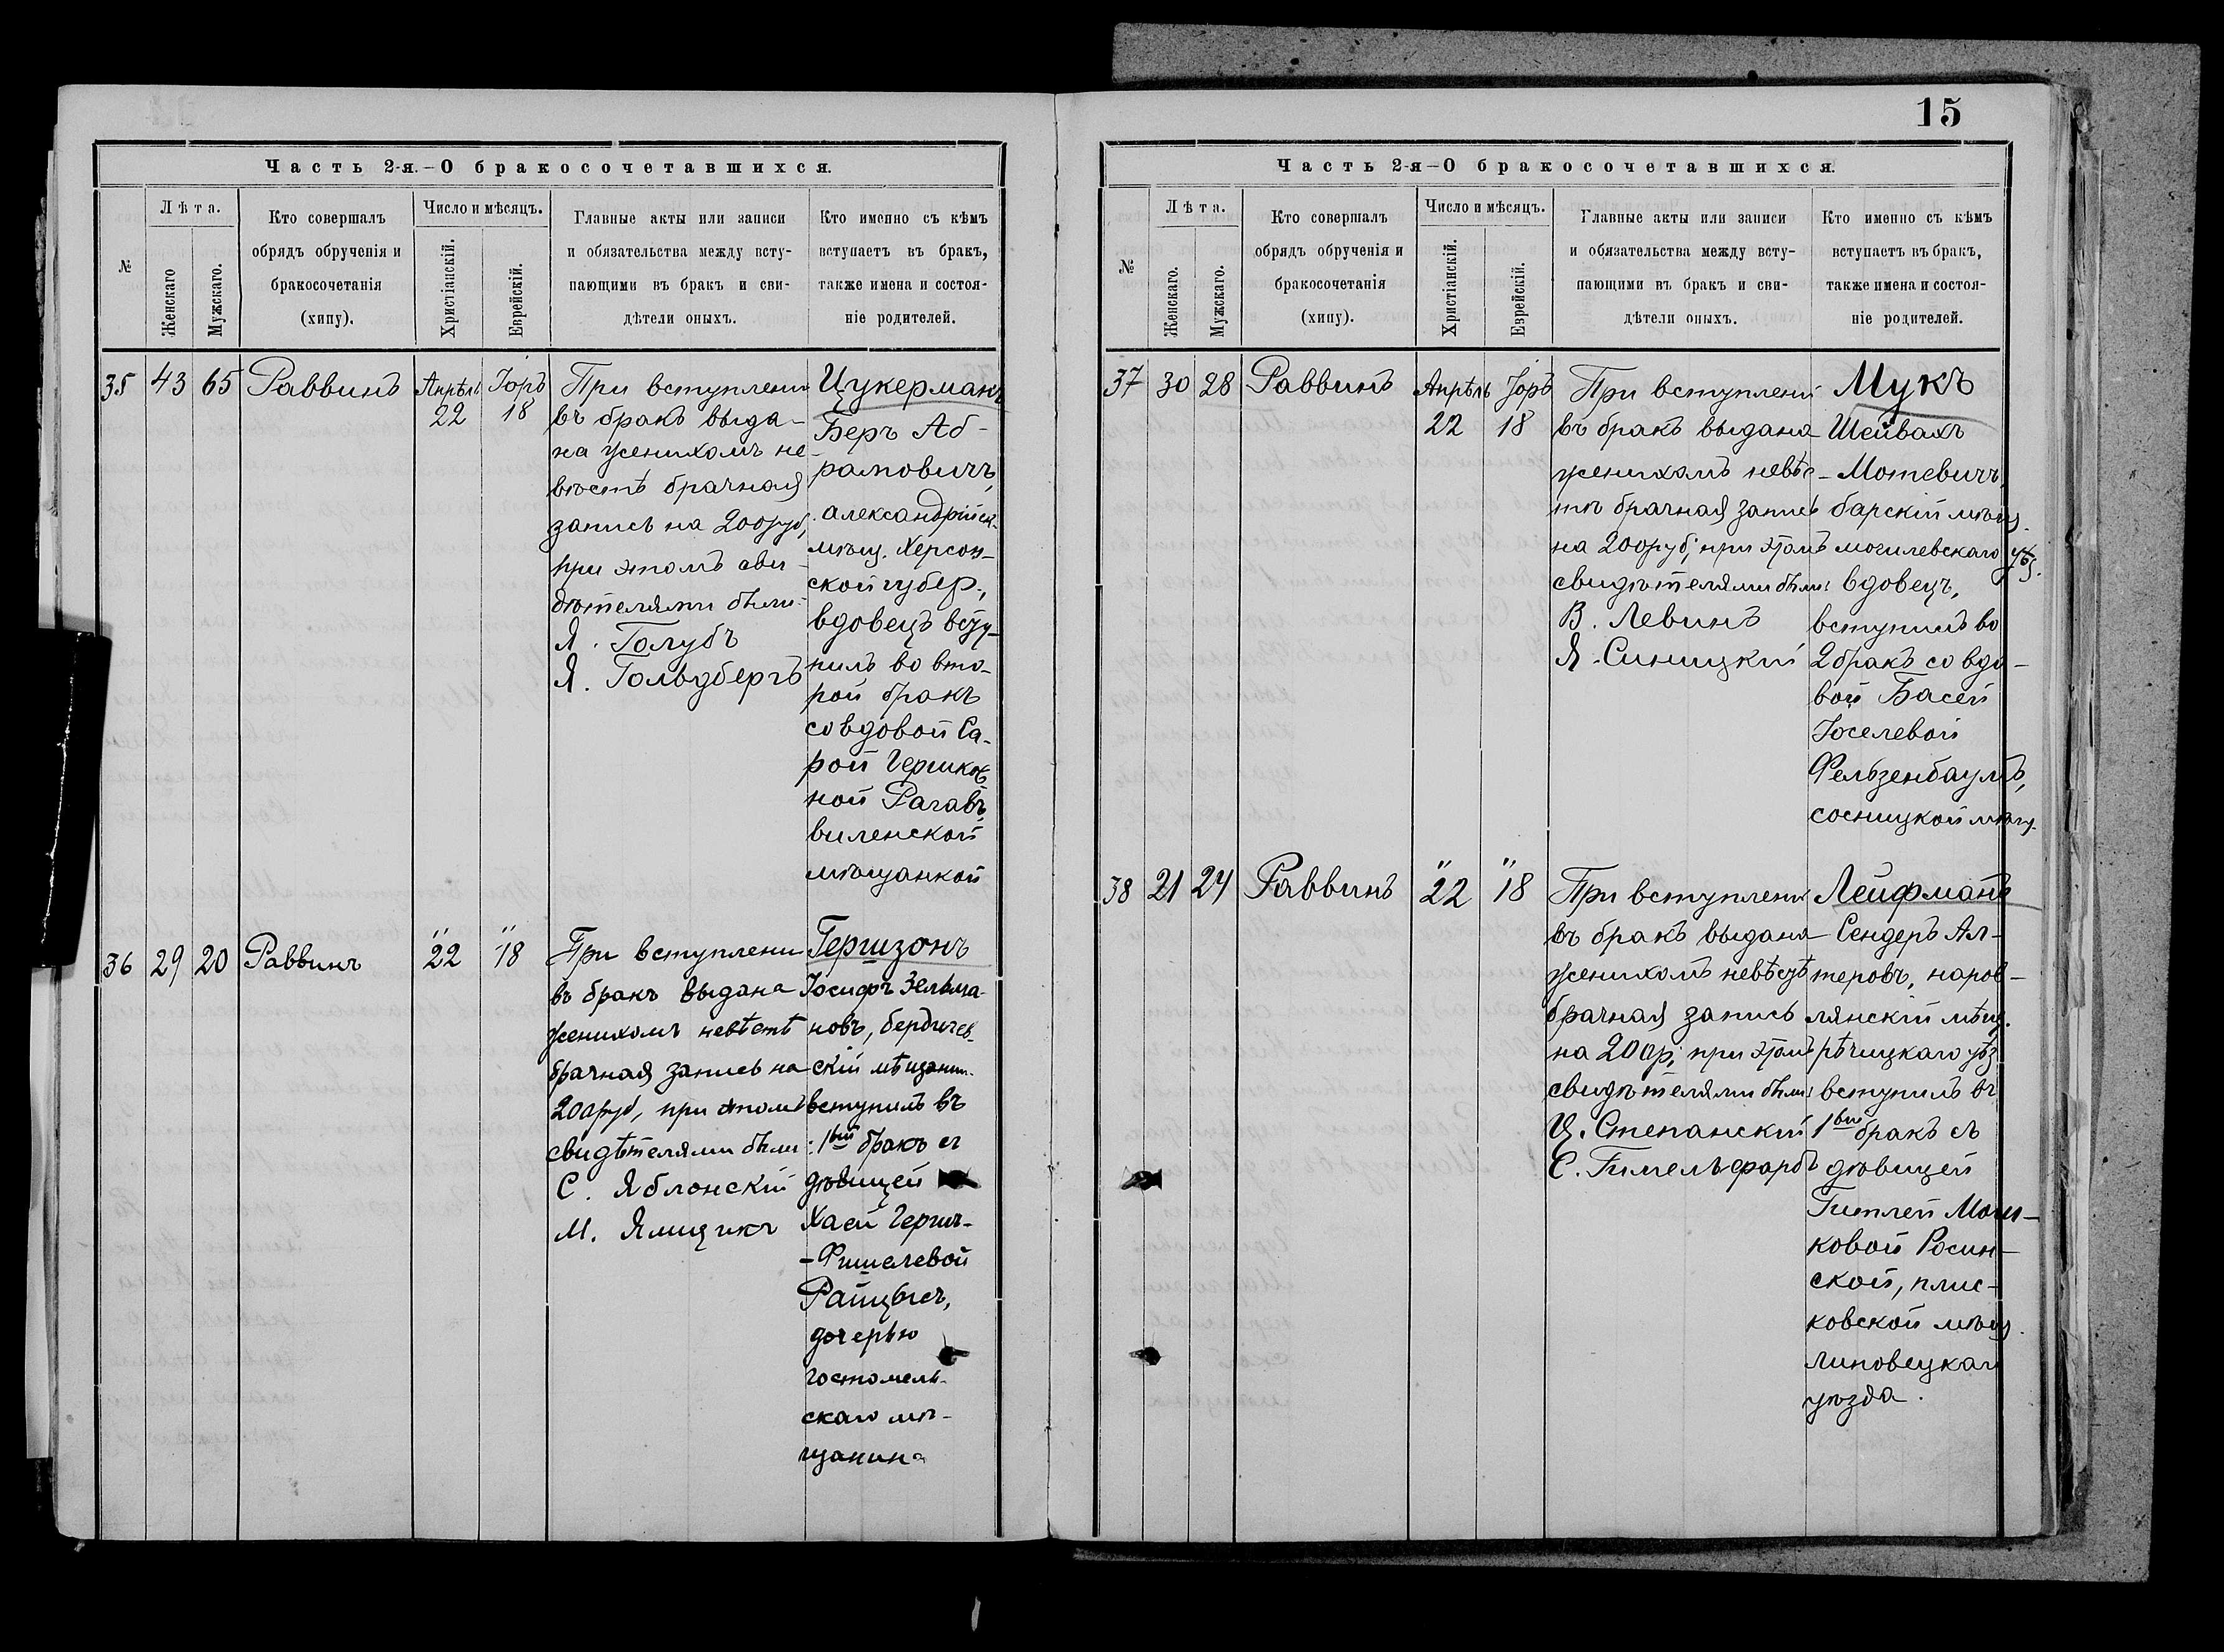 Часть 2-я.–О бракосочетавшихся.
№
Лѣта.
Женскаго
Мужскаго.
Кто совершалъ
обрядъ обрученія и
бракосочетанія
(хипу).
Число и мѣсяцъ.
Христіанскій.
Еврейскій.
Главные акты или записи
и обязательства между всту-
пающими въ бракъ и сви-
дѣтели оныхъ.
Кто именно съ кѣмъ
вступаетъ въ бракъ,
также имена и состоя-
ніе родителей.
35 43 65 Раввинъ Апрѣль 22 Іоръ 18
При вступлени
въ бракъ выда-
на женихомъ не-
вѣстѣ брачная
запись на 200 руб,
при этомъ сви-
дѣтелями были:
Я. Голубъ
Я. Гольдбергъ
Цукерманъ
Беръ Аб-
рамовичъ,
александрійск.
мѣщ. Херсон-
ской губер.,
вдовецъ всту-
пилъ во вто-
рой бракъ
со вдовой Са-
рой Гершков
ной Рагавъ,
виленской
мѣщанкой
36 29 20 Раввинъ " 22 " 18
При вступлени
въ бракъ выдана
женихомъ невѣстѣ
брачная запись на
200 руб, при этомъ
свидѣтелями были:
С. Яблонскій
М. Ямщикъ
Гершзонъ
Іосифъ Зельма-
новъ, бердичев-
скій мѣщанин.
вступилъ въ
1вый бракъ съ
дѣвицей
Хаей Герш-
-Фишелевой
Райцысъ,
дочерью
гостомель-
скаго мѣ-
щанина
15
Часть 2-я–О бракосочетавшихся.
№
Лѣта.
Женскаго.
Мужскаго.
Кто совершалъ
обрядъ обрученія и
бракосочетанія
(хипу).
Число и мѣсяцъ.
Христіанскій.
Еврейскій.
Главные акты или записи
и обязательства между всту-
пающими въ бракъ и сви-
дѣтели оныхъ.
Кто именно съ кѣмъ
вступаетъ въ бракъ,
также имена и состоя-
ніе родителей.
37 30 28 Раввинъ Апрѣль 22 Іоръ 18
При вступлени
въ бракъ выдана
женихомъ невѣс-
тѣ брачная запись
на 200 руб, при этомъ
свидѣтелями были:
В. Левинъ
Я. Синицкій
Мукъ
Шейвахъ
Мотевичъ,
барскій мѣщ.
могилевскаго уѣз.
вдовецъ,
вступилъ во
2 бракъ со вдо-
вой Басей
Іоселевой
Фельзенбаумъ,
сосницкой мѣщ.
38 21 24 Раввинъ " 22 " 18
При вступлени
въ бракъ выдана
женихомъ невѣстѣ
брачная запись
на 200 р; при этомъ
свидѣтелями были:
Ц. Степанскій
С. Гимельфарбъ
Лейфманъ
Сендеръ Ал-
теровъ, наров-
лянскій мѣщ.
рѣчицкаго уѣз
вступилъ въ
1вый бракъ съ
дѣвицей
Гитлей Мош-
ковой Росин-
ской, плис-
ковской мѣщ.
липовецкаго
уѣзда.